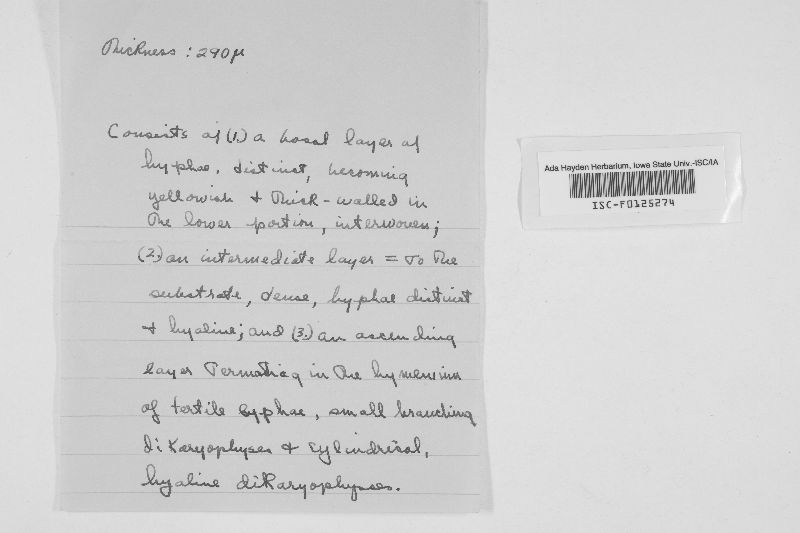 Thickness : 290 µ
Consists of (1.) a basal layer of
hyphae, distinct, becoming
yellowish + thick-walled in
the lower portion, interwoven;
(2.) an intermediate layer = to the
substrate, dense, hyphae distinct
+ hyaline; and (3.) an ascending
layer in the hymenium
of fertile hyphae, small branching
dikaryophyses + cylindrical,
hyaline dikaryophyses.
Ada Hayden Herbarium, Iowa State Univ.-ISC/IA
ISC-F0125274